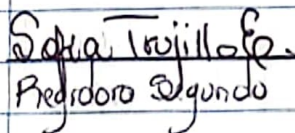 Sofia Trujillo Eo.
Regidora Segundo